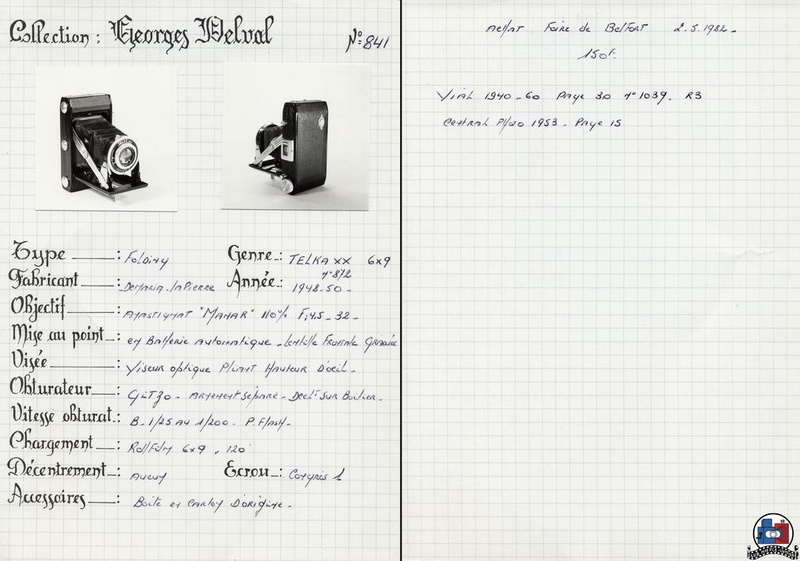 Collection : Georges Delval
N° 841
Type : Folding
Genre : TELKA XX 6x9
n° 812
Fabricant : Demaria. laPierre
Année : 1948-50-
Objectif : Anastigmat "MANAR" 110% F: 4,5 - 32 -
Mise au point : en Batterie Automatique - lentille Frontale
Visée : Viseur optique Pliant Hauteur D'oeil -
Obturateur : GITZO - Armement séparé - Declt sur Boitier -
Vitesse obturat. : B - 1/25 au 1/200 - P. Flash -
Chargement : Rollfilm 6x9 . 120
Décentrement : Aucun
Ecrou : Congrés
Accessoires : Boite en Carton D'origine -
Achat Foire de Belfort 2.5.1982 -
150F.
Vial 1940-60 Page 30 n° 1039. R3
Central Photo 1953 - Page 15